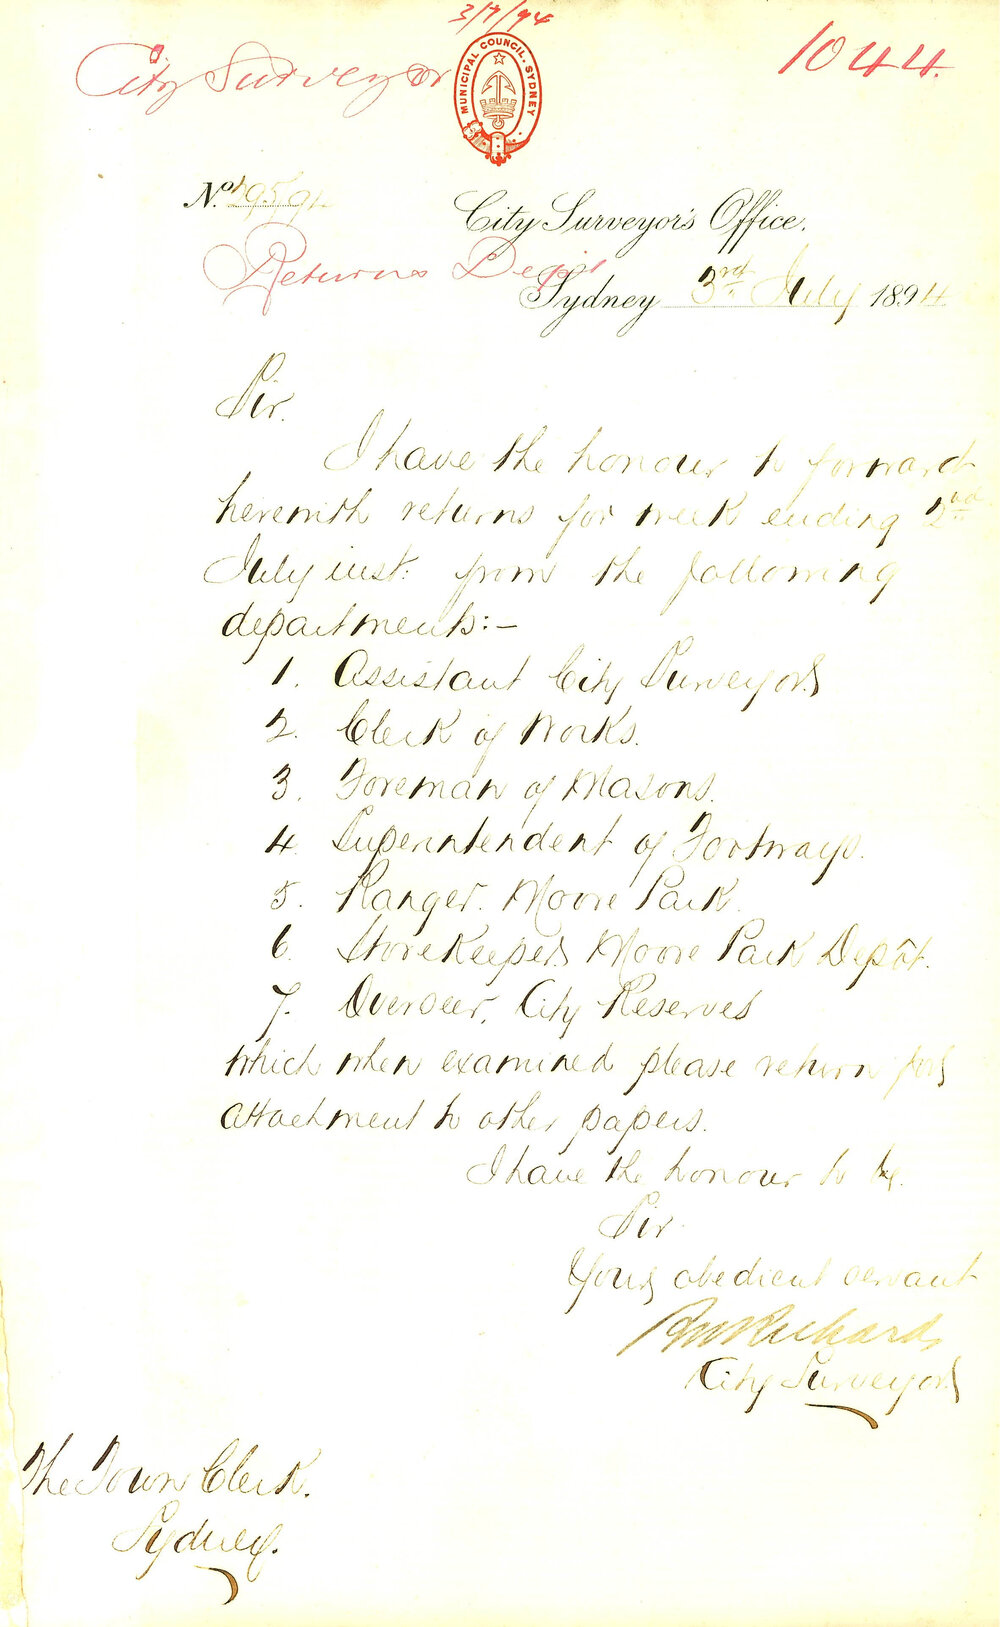 3/7/94
City Surveyor
1044.
MUNICIPAL COUNCIL. SYDNEY
No. 795/94
City Surveyor's Office.
Returns Dept
Sydney 3rd July 1894
Sir.
I have the honour to forward
herewith returns for week ending 2nd
July inst: from the following
departments:-
1. Assistant City Surveyor
2. Clerk of Works.
3. Foreman of Masons.
4. Superintendent of Footways.
5. Ranger. Moore Park.
6. Storekeeper Moore Park Depôt.
7. Overseer, City Reserves
which when examined please return for
attachment to other papers.
I have the honour to be.
Sir.
Your obedient servant
RW Richards
City Surveyor
The Town Clerk.
Sydney.